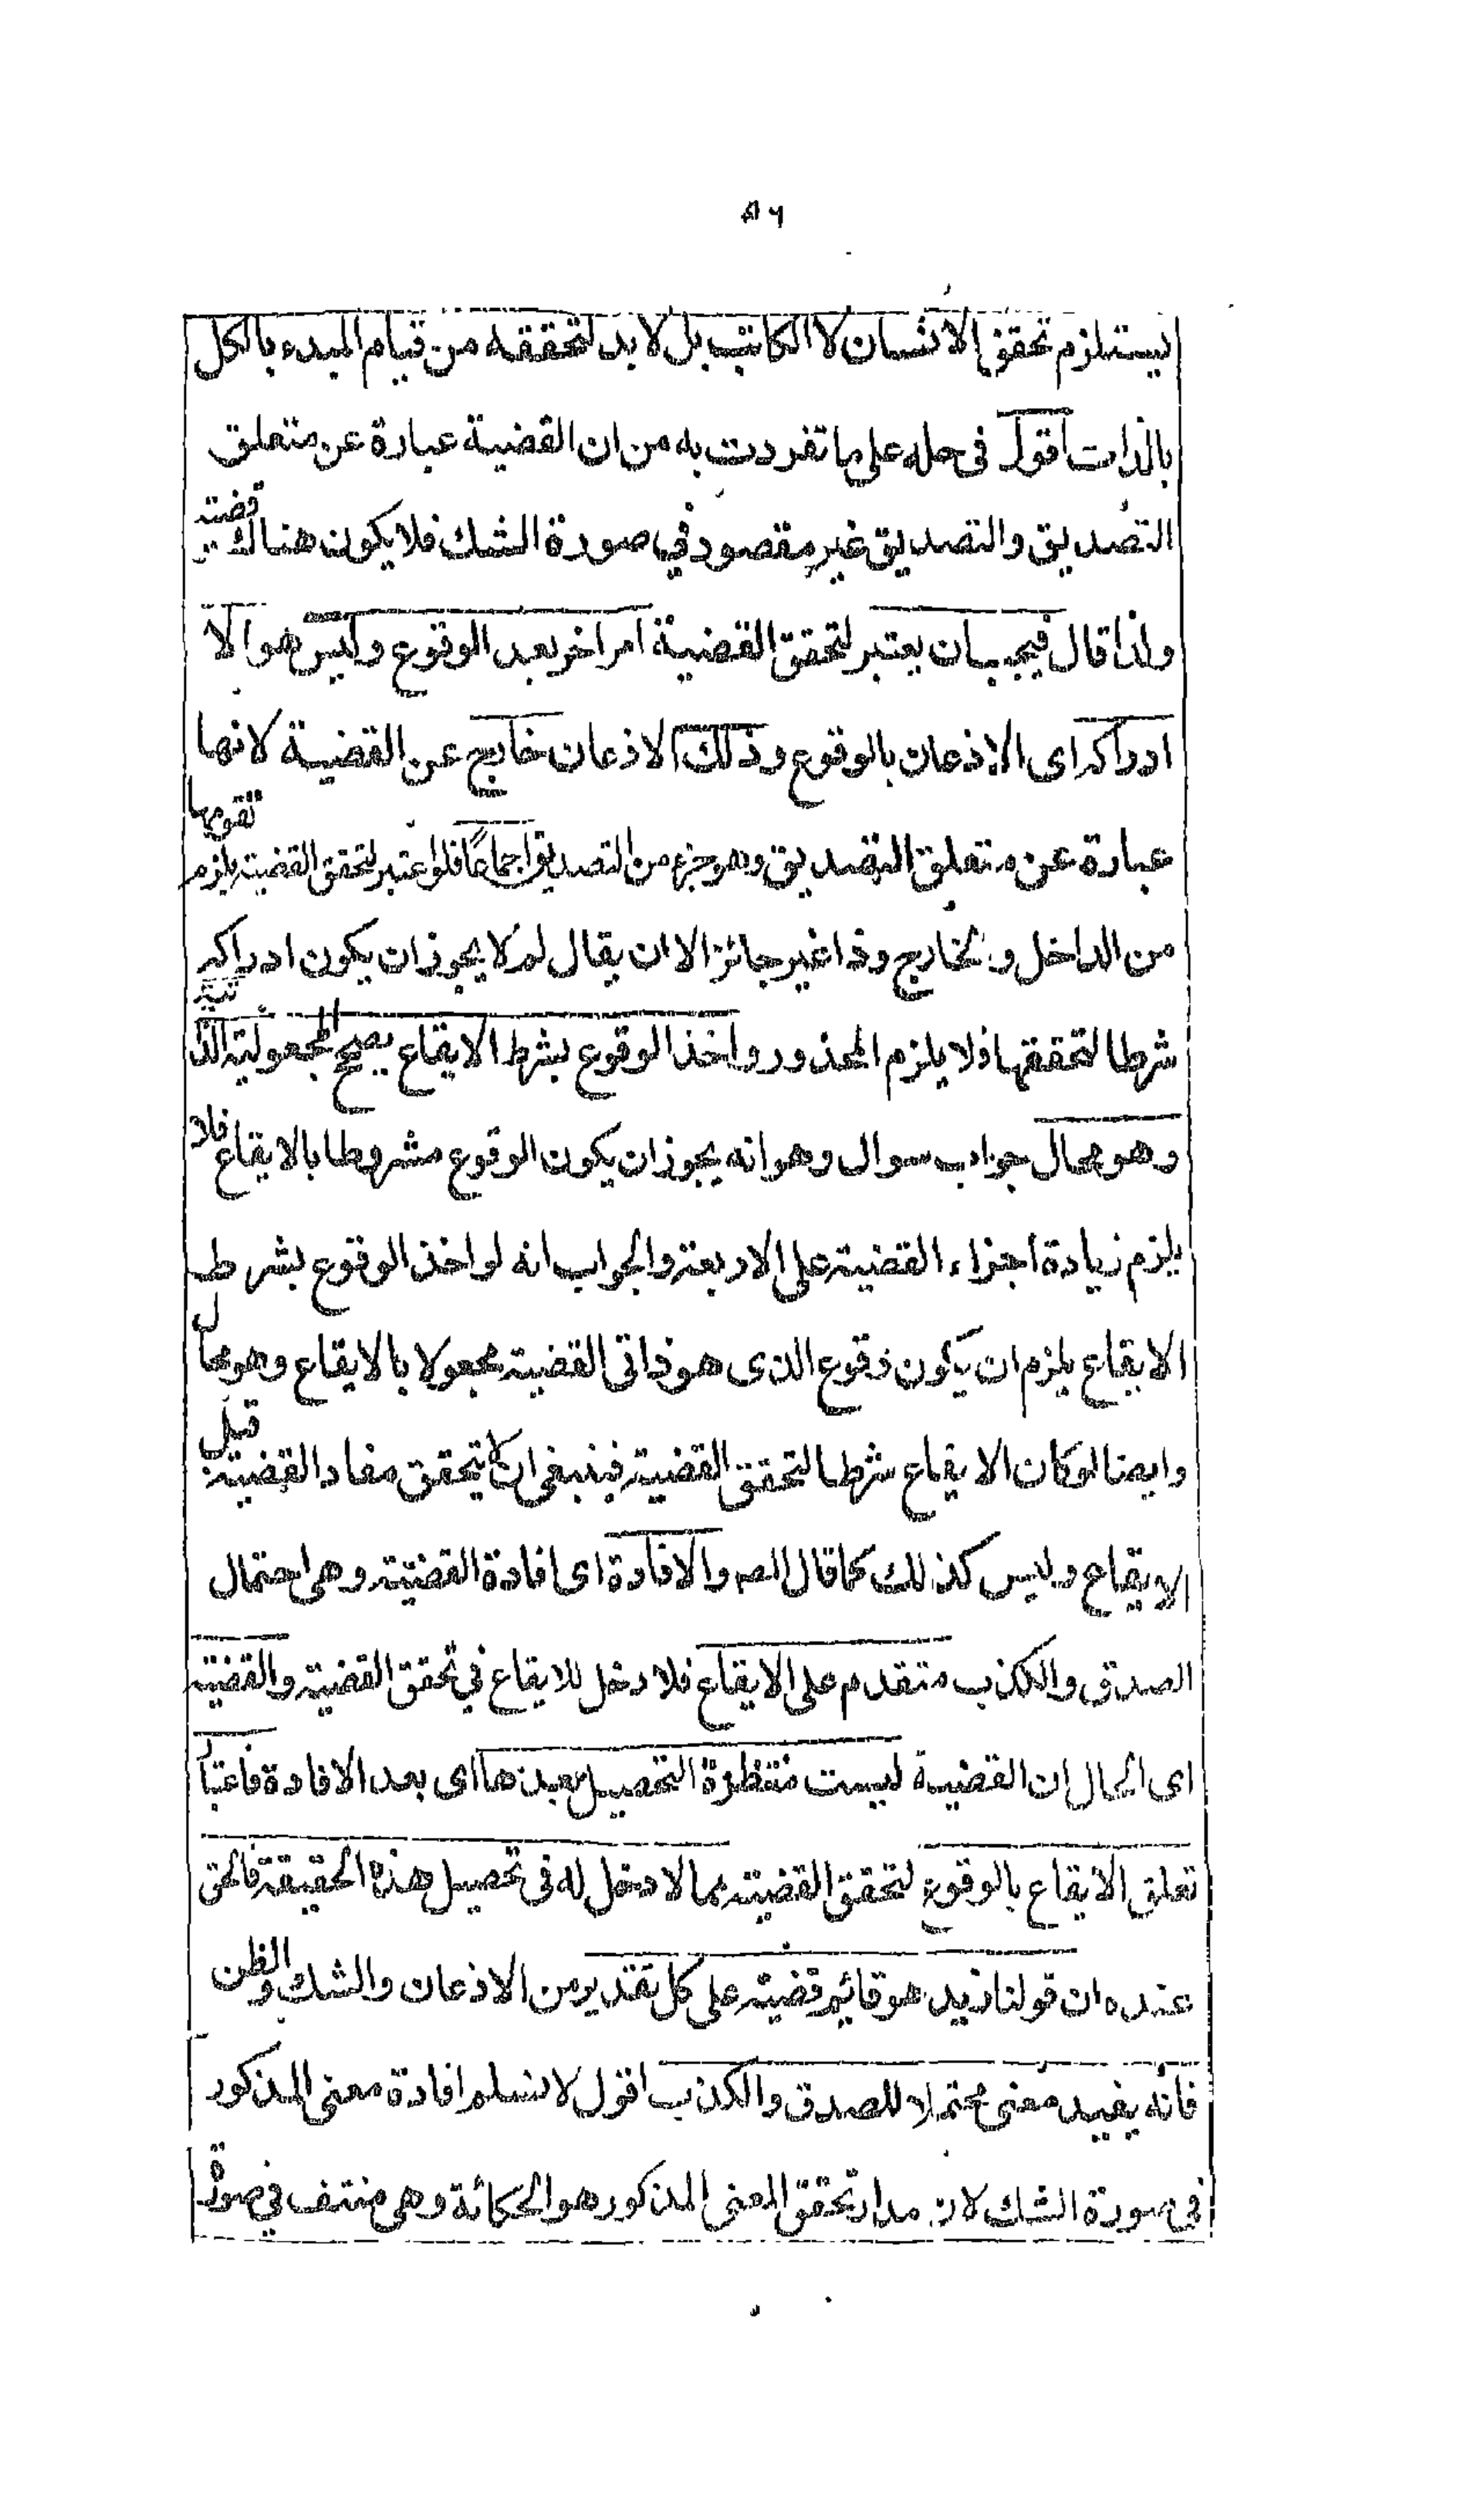 ۵۶
يستلزم تحقق الانسان لا الكاتب بل لا بد لتحققه من قيام المبدء بالكل
بالذات اقول فى حله على ما تفردت به من ان القضية عبارة عن متعلق
التصديق والتصديق غير مقصود في صورة الشك فلا يكون هناك قضية
ولذا قال فيجب ان يعتبر لتحقق القضية امر اخر بعد الوقوع وليس هو الا
ادراكه اى الاذعان بالوقوع وذلك الاذعان خارج عن القضية لانها
عبارة عن متعلق التصديق وهو جزء من التصديق اجماعًا فلو اعتبر لتحقق القضية يلزم تقومها
من الداخل والخارج وذا غير جائز الا ان يقال لم لا يجوز ان يكون ادراكه
شرطا لتحققها فلا يلزم المحذور واخذ الوقوع بشرط الايقاع يصحح المجعولية الذاتية
وهو محال جواب سوال وهو انه يجوز ان يكون الوقوع مشروطا بالايقاع فلا
يلزم زيادة اجزاء القضية على الاربعة والجواب انه لو اخذ الوقوع بشرط
الايقاع يلزم ان يكون وقوع الذى هو ذاتى القضية مجعولا بالايقاع وهو محال
وايضا لو كان الايقاع شرطا لتحقق القضية فينبغى ان لا يتحقق مفاد القضية قبل
الايقاع وليس كذلك كما قال المصـ والافادة اى افادة القضية وهى احتمال
الصدق والكذب متقدم على الايقاع فلا دخل للايقاع في تحقق القضية والقضية
اى الحال ان القضية ليست منتظرة التحصيل بعدها اى بعد الافادة فاعتبار
تعلق الايقاع بالوقوع لتحقق القضية مما لا دخل له فى تحصيل هذه الحقيقة فالحق
عنده ان قولنا زيد هو قائم قضية على كل تقدير من الاذعان والشك والظن
فانه يفيد معنى محتملا للصدق والكذب اقول لا نسلم افادة معنى المذكور
فى صورة الشك لان مدار تحقق المعنى المذكور هو الحكاية وهى منتف في صورة